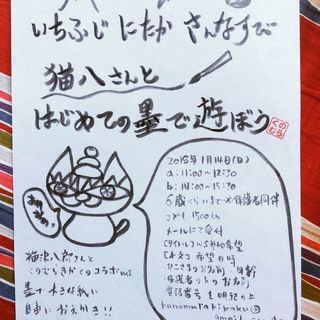 いちふじ にたか さんなすび
猫八さんと
はじめての墨で遊ぼう
くのむら
2018年1月14日(日)
a:11:00~12:30
b:14:00~15:30
6歳くらいまで×保護者同伴
こども 1500円
メールにて受付
[タイトル]WS参加希望
[本文]希望日時
お子さまのお名前、年齢
保護者の方のお名前
電話番号を明記の上
kunomurakikaku@
猫沢八郎さんと
くのむらきかくのコラボWS
墨で大きな紙に
自由にお絵かき!!